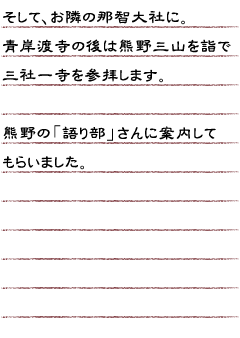 そして、お隣の那智大社に。
青岸渡寺の後は熊野三山を詣で
三社一寺を参拝します。
熊野の「語り部」さんに案内して
もらいました。